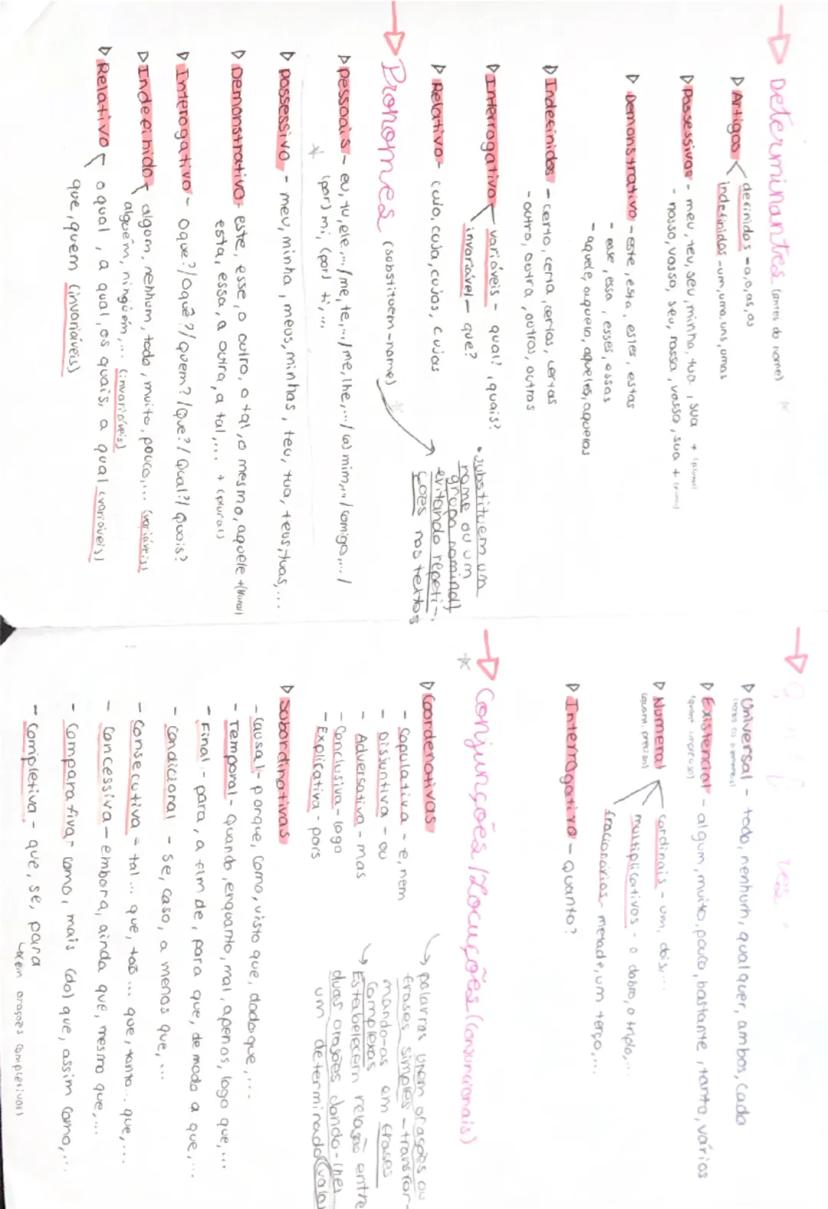 Determinantes (antes do nome)
▷ Artigos < definidos - a, o, as, os
indefinidos - um, uma, uns, umas
▷ Possessivos - meu, teu, seu, minha, tua, sua + (plural)
- nosso, vosso, seu, nossa, vossa, sua +
▷ Demonstrativo - este, esta, estes, estas
- esse, essa, esses, essas
- aquele, aquela, aqueles, aquelas
▷ Indefinidos - certo, certa, certos, certas
- outro, outra, outros, outras
▷ Interrogativo < variáveis - qual?, quais?
invariável - que?
▷ Relativo - cujo, cuja, cujos, cujas
Pronomes (substituem-nome)
• substituem um
nome ou um
grupo nominal
evitando repeti-
ções nos textos
▷ Pessoais - eu, tu, ele,.../me, te,.../me, lhe,.../(a) mim,.../comigo,.../
(por) mi, (por) ti,...
▷ Possessivo - meu, minha, meus, minhas, teu, tua, teus, tuas,...
▷ Demonstrativo - este, esse, o outro, o tal, o mesmo, aquele + (plural)
esta, essa, a outra, a tal,... + (plural)
▷ Interogativo - O que?/O quê?/Quem?/Que?/Qual?/Quais?
▷ Indefinido < algum, nenhum, todo, muito, pouco,... (variáveis)
alguém, ninguém,... (invariáveis)
▷ Relativo < o qual, a qual, os quais, a qual (variáveis)
que, quem (invariáveis)
▷ Universal - todo, nenhum, qualquer, ambos, cada
▷ Existencial - algum, muito, pouco, bastante, tanto, vários
▷ Numeral
(quant. preciso)
cardinais - um, dois,...
multiplicativos - o dobro, o triplo,...
fracionários - metade, um terço,...
▷ Interrogativo - quanto?
Conjunções/Locuções (conjuncionais)
↳ palavras unem orações ou
frases simples - transfor-
mando-as em frases
complexas
↳ Estabelecem relação entre
duas orações dando-lhes
um determinado valor
▷ Coordenativas
- Copulativa - e, nem
- Disjuntiva - ou
- Adversativa - mas
- Conclusiva - logo
- Explicativa - pois
▷ Subordinativas
- Causal - porque, como, visto que, dado que,...
- Temporal - quando, enquanto, mal, apenas, logo que,...
- Final - para, a fim de, para que, de modo a que,...
- Condicional - se, caso, a menos que,...
- Consecutiva - tal... que, tão... que, tanto... que,...
- Concessiva - embora, ainda que, mesmo que,...
- Comparativa - como, mais (do) que, assim como,...
- Completiva - que, se, para
orações completivas)